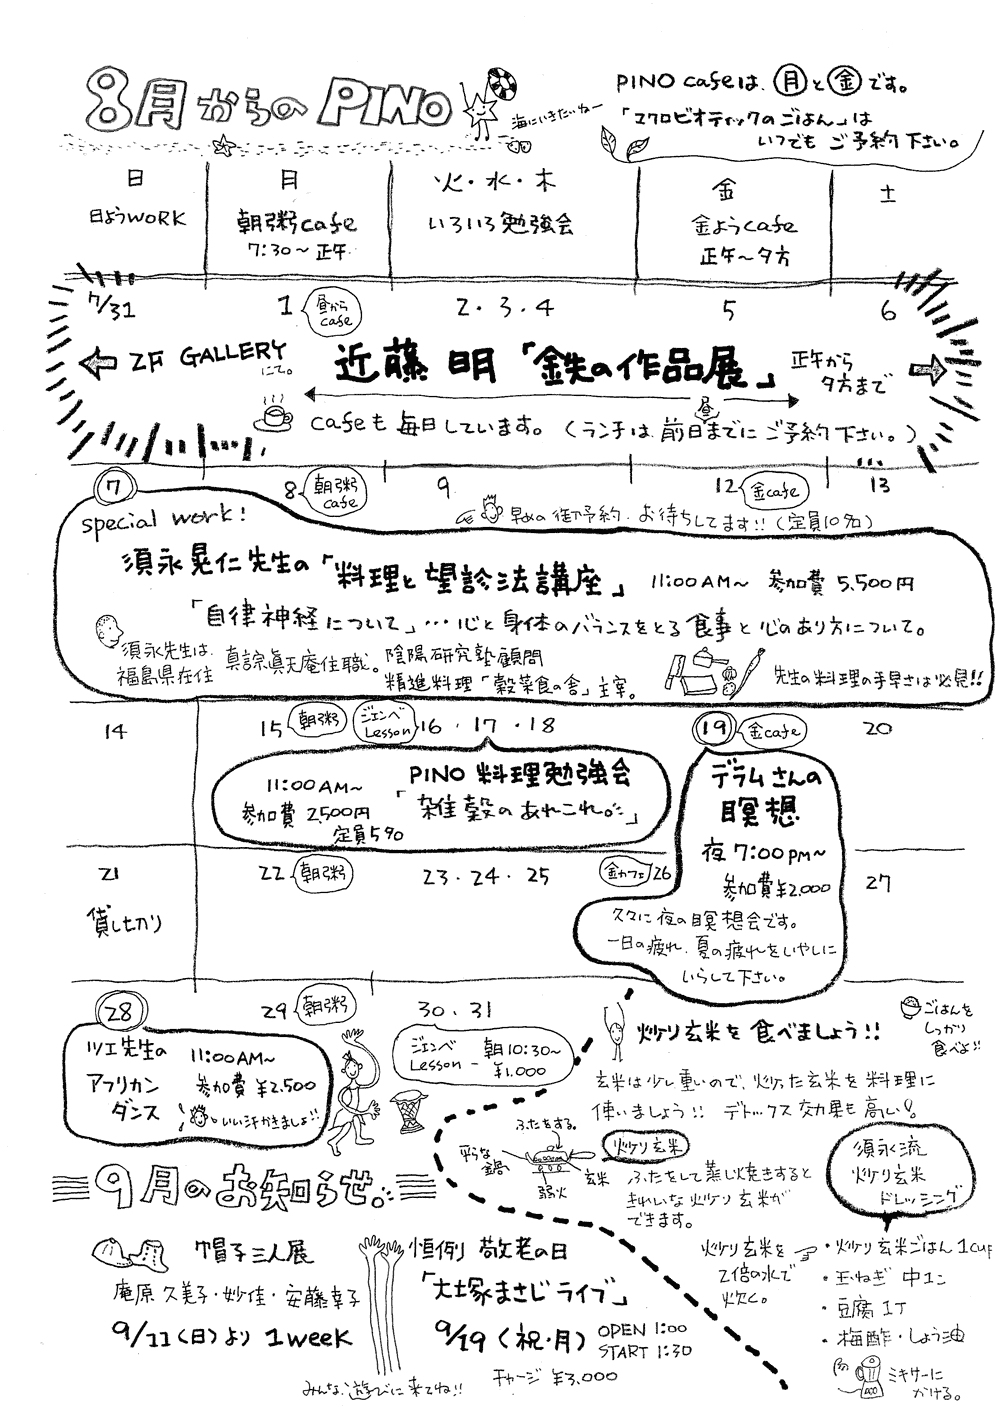 8月からのPINO
海にいきたいねー
PINO cafeは、月と金です。
「マクロビオティックのごはん」は
いつでも ご予約下さい。
日
日ようWORK
月
朝粥cafe
7:30〜正午
火・水・木
いろいろ勉強会
金
金ようcafe
正午〜夕方
土
7/31
1
昼から
cafe
2・3・4
5
6
2F GALLERY
にて。
近藤 明「鉄の作品展」
正午から
夕方まで
cafeも毎日しています。(ランチは、前日昼までにご予約下さい。)
7
8
朝粥
cafe
9
12
金cafe
13
special work!
早めの御予約、お待ちしてます!!(定員10名)
須永晃仁先生の「料理と望診法講座」 11:00AM〜 参加費 5,500円
「自律神経について」…心と身体のバランスをとる食事と心のあり方について。
須永先生は、
福島県在住 真言宗眞天庵住職。陰陽研究塾顧問
精進料理「穀菜食の舎」主宰。
先生の料理の手早さは必見!!
14
15
朝粥
ジェンベ
Lesson
16・17・18
19
金cafe
20
11:00AM〜
参加費 2,500円
定員5名
PINO 料理勉強会
「雑穀のあれこれ。」
デラムさんの
瞑想
夜 7:00PM〜
参加費¥2,000
久々に夜の瞑想会です。
一日の疲れ、夏の疲れをいやしに
いらして下さい。
21
貸し切り
22
朝粥
23・24・25
金カフェ
26
27
28
29
朝粥
30・31
ツエ先生の
アフリカン
ダンス
11:00AM〜
参加費 ¥2,500
いい汗かきましょ!!
ジェンベ
Lesson
朝10:30〜
¥1,000
炒り玄米を食べましょう!!
ごはんを
しっかり
食べよ!!
玄米は少し重いので、炒った玄米を料理に
使いましょう!! デトックス効果も高い!
ふたをする。
平らな
鍋
弱火
玄米
炒り玄米
ふたをして蒸し焼きすると
きれいな炒り玄米が
できます。
須永流
炒り玄米
ドレッシング
炒り玄米を
2倍の水で
炊く。
・炒り玄米ごはん 1cup
・玉ねぎ 中1コ
・豆腐 1丁
・梅酢・しょう油
ミキサーに
かける。
9月のお知らせ
帽子三人展
庵原久美子・妙佳・安藤幸子
9/11(日)より 1week
恒例 敬老の日
「大塚まさじライブ」
9/19(祝・月)
OPEN 1:00
START 1:30
チャージ ¥3,000
みんな、遊びに来てね!!